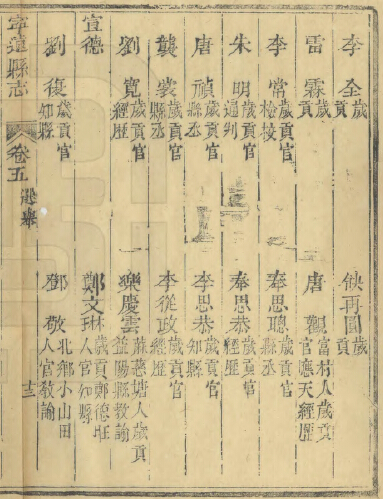 李全歲貢
缺再圓歲貢
雷霖歲貢
唐觀富村人歲貢官應天經歷
李常歲貢官檢校
奉思聰歲貢官縣丞
朱明歲貢官通判
奉思恭歲貢官經歷
唐禎歲貢官縣丞
李思恭歲貢官知縣
龔裳歲貢官縣丞
李從政歲貢官經歷
劉寬歲貢官經歷
樂慶雲蘇慈塘人歲貢益陽縣教諭
宣德
鄭文琳歲貢鄭德旺人官知縣
劉復歲貢官知縣
鄧敬北鄉小山田人官教諭
寧遠縣志
卷五
選舉
十三